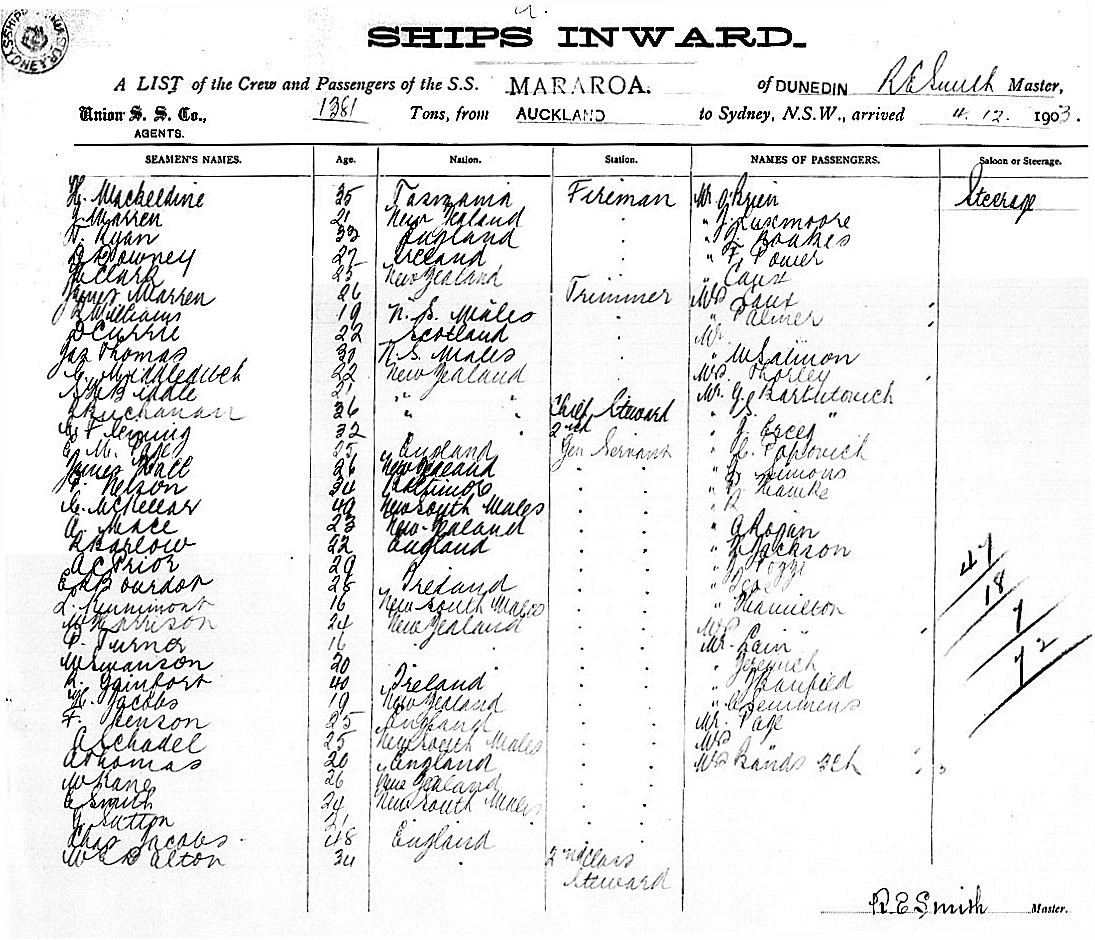 SHIPS INWARD.
A LIST of the Crew and Passengers of the S.S. MARAROA. of DUNEDIN R E Smith Master,
Union S. S. Co., 1381 Tons, from AUCKLAND to Sydney, N.S.W., arrived 4. 12. 1903.
AGENTS.
SEAMEN'S NAMES. Age. Nation. Station. NAMES OF PASSENGERS. Saloon or Steerage.
35 Tasmania Fireman Mr O'Brien Steerage
J. Warren 21 New Zealand " J. Luxmoore
Ryan 33 England " Boakes
Downey 27 Ireland " F. Power
Clark 25 New Zealand " Caux
James Warren 26 Trimmer Mrs Caux
Williams 19 N. S. Wales " Palmer
D Currie 22 Scotland Mr
Jas Thomas 30 N. S. Wales " W Salmon
22 New Zealand Mrs Thorley
Biddle 21 " " Mr. G. Bartulovich
Buchanan 36 " " Chief Steward
Fleming 32 2nd " J.
E. M. Page 25 England Gen Servant " Popovich
James Hall 26 New Zealand " Simmons
Nelson 34 Baltimore " Hawke
McKellar 49 New South Wales
A. Mace 23 New Zealand
Barlow 22 England " Jackson
A C Prior 29
E Bourdot 28 Ireland
16 New South Wales " Hamilton
W Harrison 24 New Zealand Mrs "
Turner 16 Mr. Cain
W Swanson 20
R. 40 Ireland " Banfield
H. Jacobs 19 New Zealand " C Semmens
F. Henson 25 England Mr. Page
A Schadel 25 New South Wales Mrs "
A Thomas 20 England Mrs Bands 3 Ch
W Kane 26 New Zealand
E Smith 24 New South Wales
J Sutton 21
Chas Jacobs 48 England
W E Dalton 34 2nd Class
Steward
47
18
7
72
R. E Smith Master.